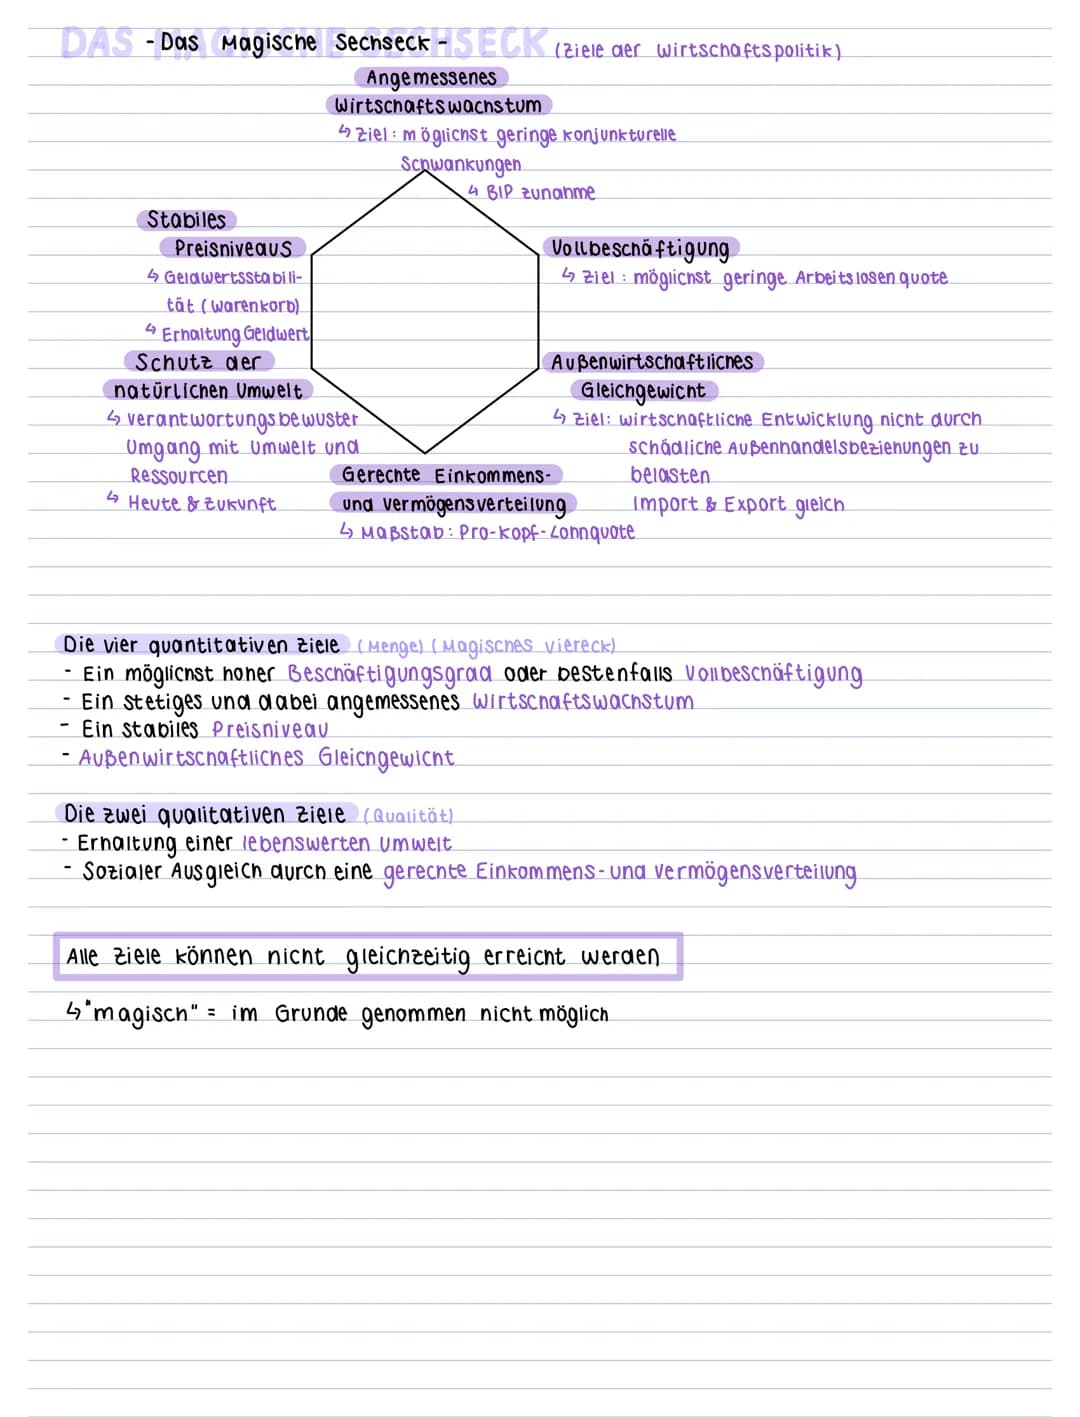 DAS MAGISCHE SECHSECK
- Das Magische Sechseck - (Ziele der Wirtschaftspolitik)
Angemessenes
Wirtschaftswachstum
↳ Ziel: möglichst geringe konjunkturelle
Schwankungen
↳ BIP zunahme
Stabiles
Preisniveaus
↳ Geldwertsstabili-
tät (Warenkorb)
↳ Erhaltung Geldwert
Vollbeschäftigung
↳ Ziel: möglichst geringe Arbeitslosenquote
Schutz der
natürlichen Umwelt
↳ verantwortungsbewuster
Umgang mit Umwelt und
Ressourcen
↳ Heute & Zukunft
Außenwirtschaftliches
Gleichgewicht
↳ Ziel: wirtschaftliche Entwicklung nicht durch
schädliche Außenhandelsbeziehungen zu
belasten
Import & Export gleich
Gerechte Einkommens-
und Vermögensverteilung
↳ Maßstab: Pro-Kopf-Lohnquote
Die vier quantitativen Ziele (Menge) (Magisches Viereck)
- Ein möglichst hoher Beschäftigungsgrad oder bestenfalls Vollbeschäftigung
- Ein stetiges und dabei angemessenes Wirtschaftswachstum
- Ein stabiles Preisniveau
- Außenwirtschaftliches Gleichgewicht
Die zwei qualitativen Ziele (Qualität)
- Erhaltung einer lebenswerten Umwelt
- Sozialer Ausgleich durch eine gerechte Einkommens- und Vermögensverteilung
Alle Ziele können nicht gleichzeitig erreicht werden
↳ "magisch" = im Grunde genommen nicht möglich